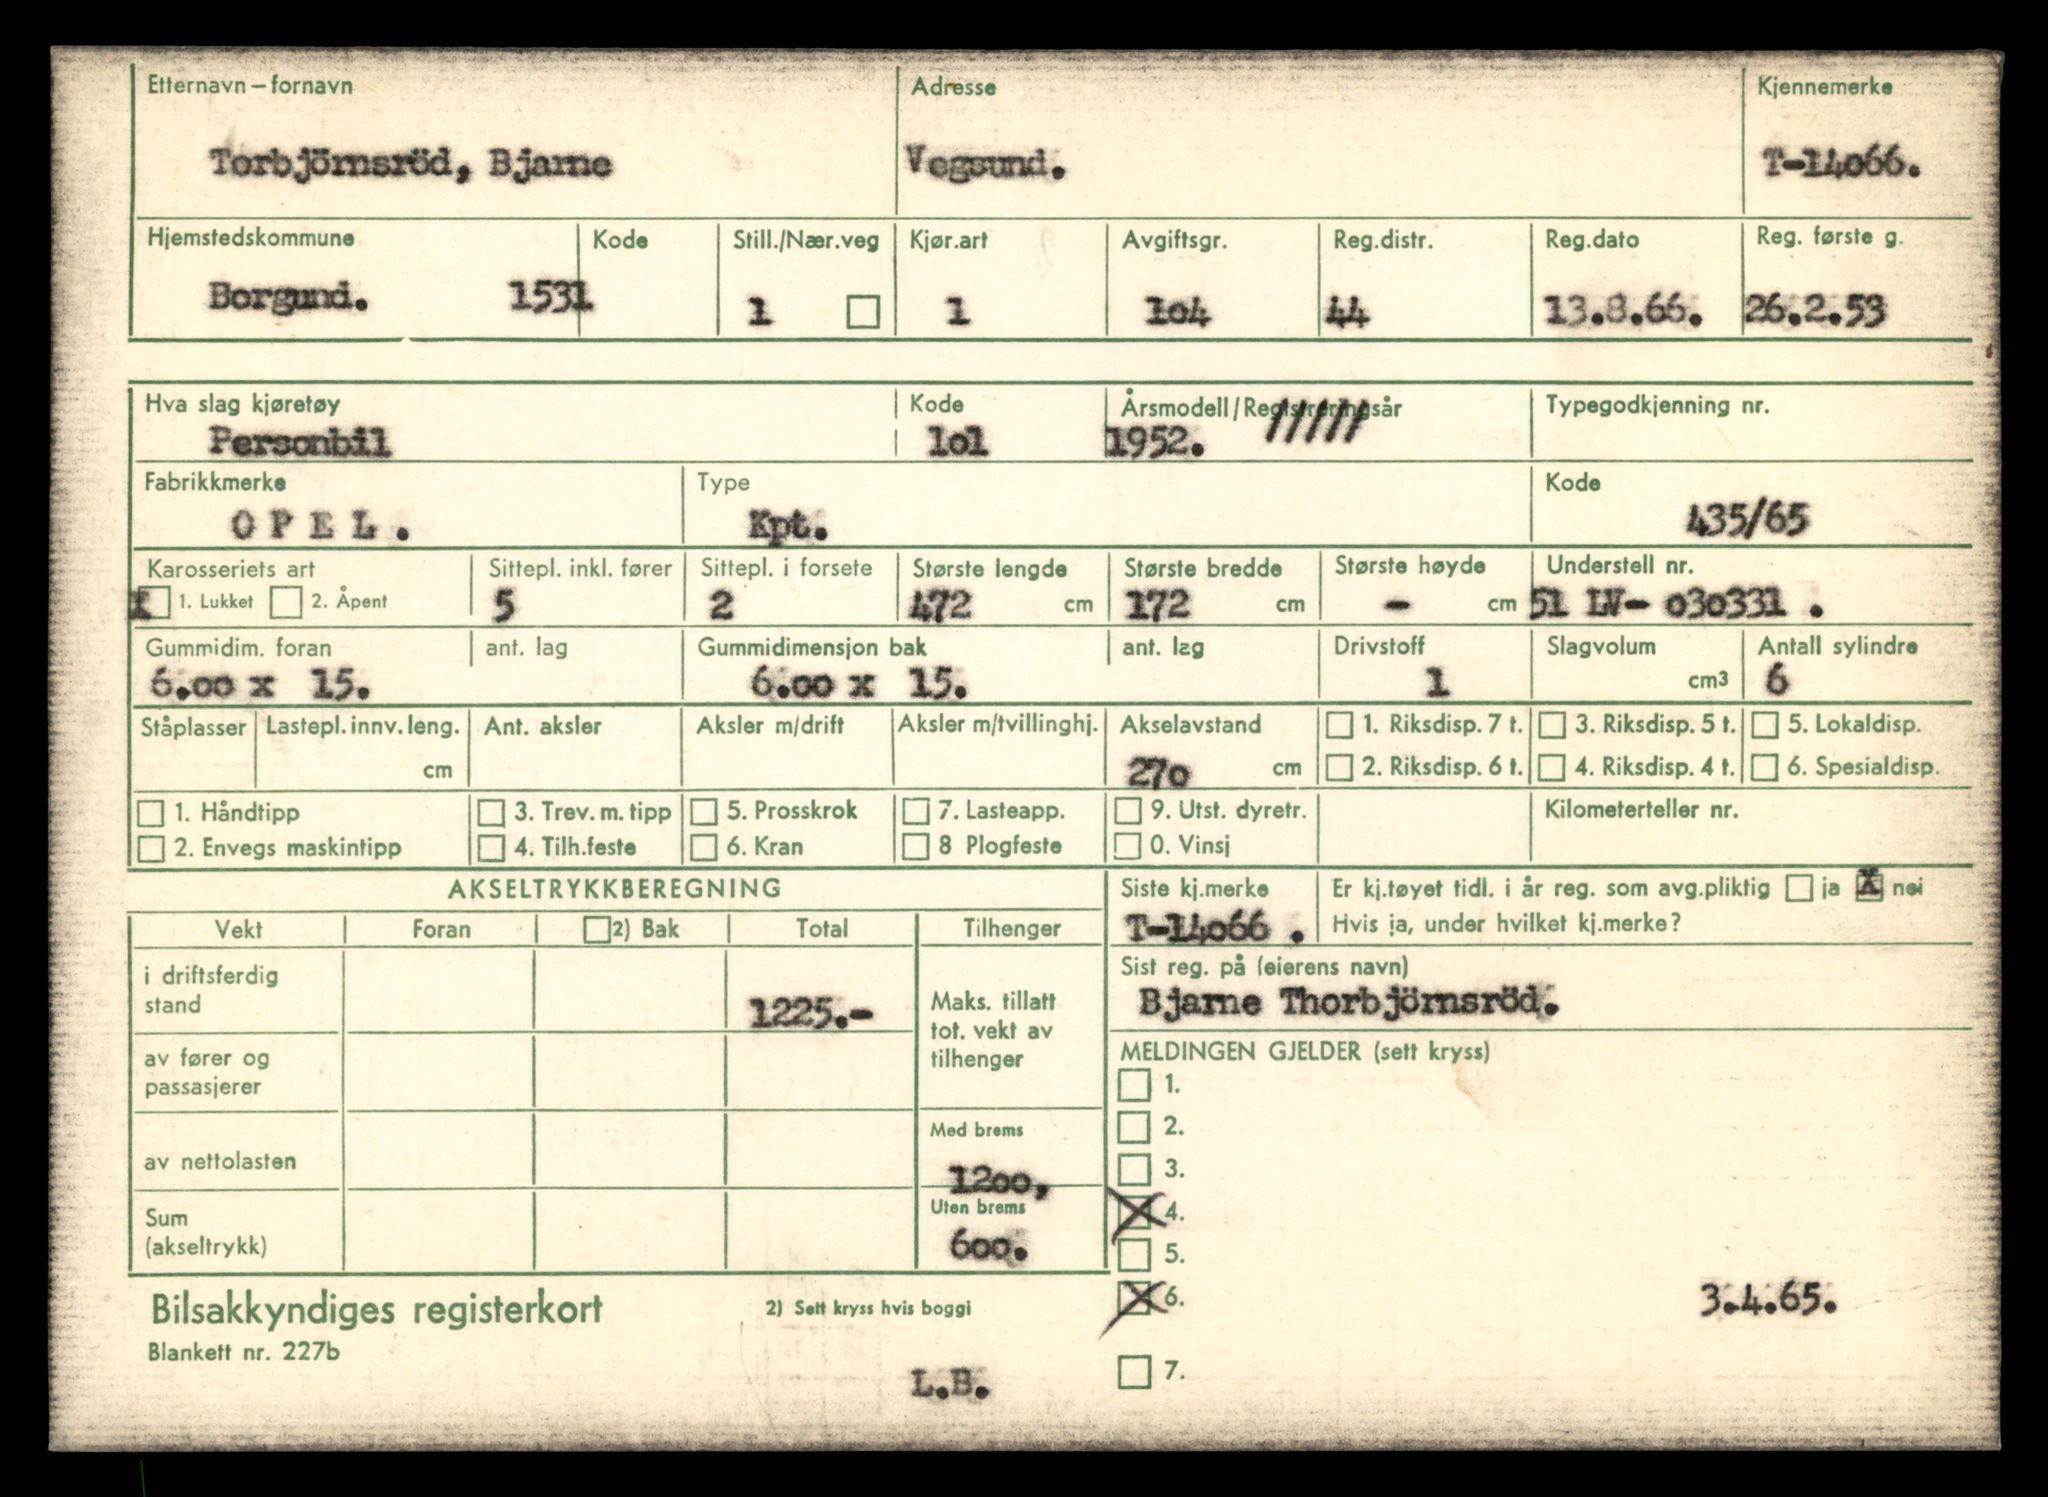 Etternavn – fornavn Adresse Kjennemerke
Torbjörnsröd, Bjarne Vegsund. T-14o66.
Hjemstedskommune Kode Still./Nær.veg Kjør.art Avgiftsgr. Reg.distr. Reg.dato Reg. første g.
Borgund. 1531 1 1 1o4 44 13.8.66. 26.2.53
Hva slag kjøretøy Kode Årsmodell/Registreringsår Typegodkjenning nr.
Personbil 1o1 1952. /////
Fabrikkmerke Type Kode
O P E L . Kpt. 435/65
Karosseriets art Sittepl. inkl. fører Sittepl. i forsete Største lengde Største bredde Største høyde Understell nr.
X 1. Lukket 2. Åpent 5 2 472 cm 172 cm - cm 51 LV- o3o331 .
Gummidim. foran ant. lag Gummidimensjon bak ant. lag Drivstoff Slagvolum Antall sylindre
6.oo x 15. 6.oo x 15. 1 cm3 6
Ståplasser Lastepl. innv. leng. Ant. aksler Aksler m/drift Aksler m/tvillinghj. Akselavstand 1. Riksdisp. 7 t. 3. Riksdisp. 5 t. 5. Lokaldisp.
cm 27o cm 2. Riksdisp. 6 t. 4. Riksdisp. 4 t. 6. Spesialdisp.
1. Håndtipp 3. Trev. m. tipp 5. Prosskrok 7. Lasteapp. 9. Utst. dyretr. Kilometerteller nr.
2. Envegs maskintipp 4. Tilh.feste 6. Kran 8 Plogfeste 0. Vinsj
AKSELTRYKKBEREGNING
Siste kj.merke Er kj.tøyet tidl. i år reg. som avg.pliktig ja X nei
T-14o66 . Hvis ja, under hvilket kj.merke?
Vekt Foran 2) Bak Total Tilhenger
Sist reg. på (eierens navn)
Bjarne Thorbjörnsröd.
i driftsferdig
stand 1225.-
Maks. tillatt
tot. vekt av
tilhenger
av fører og
passasjerer
MELDINGEN GJELDER (sett kryss)
1.
2.
3.
X 4.
5.
X 6. 3.4.65.
7.
av nettolasten
Med brems
12oo,
Sum
(akseltrykk)
Uten brems
6oo.
Bilsakkyndiges registerkort 2) Sett kryss hvis boggi
Blankett nr. 227b
L.B.